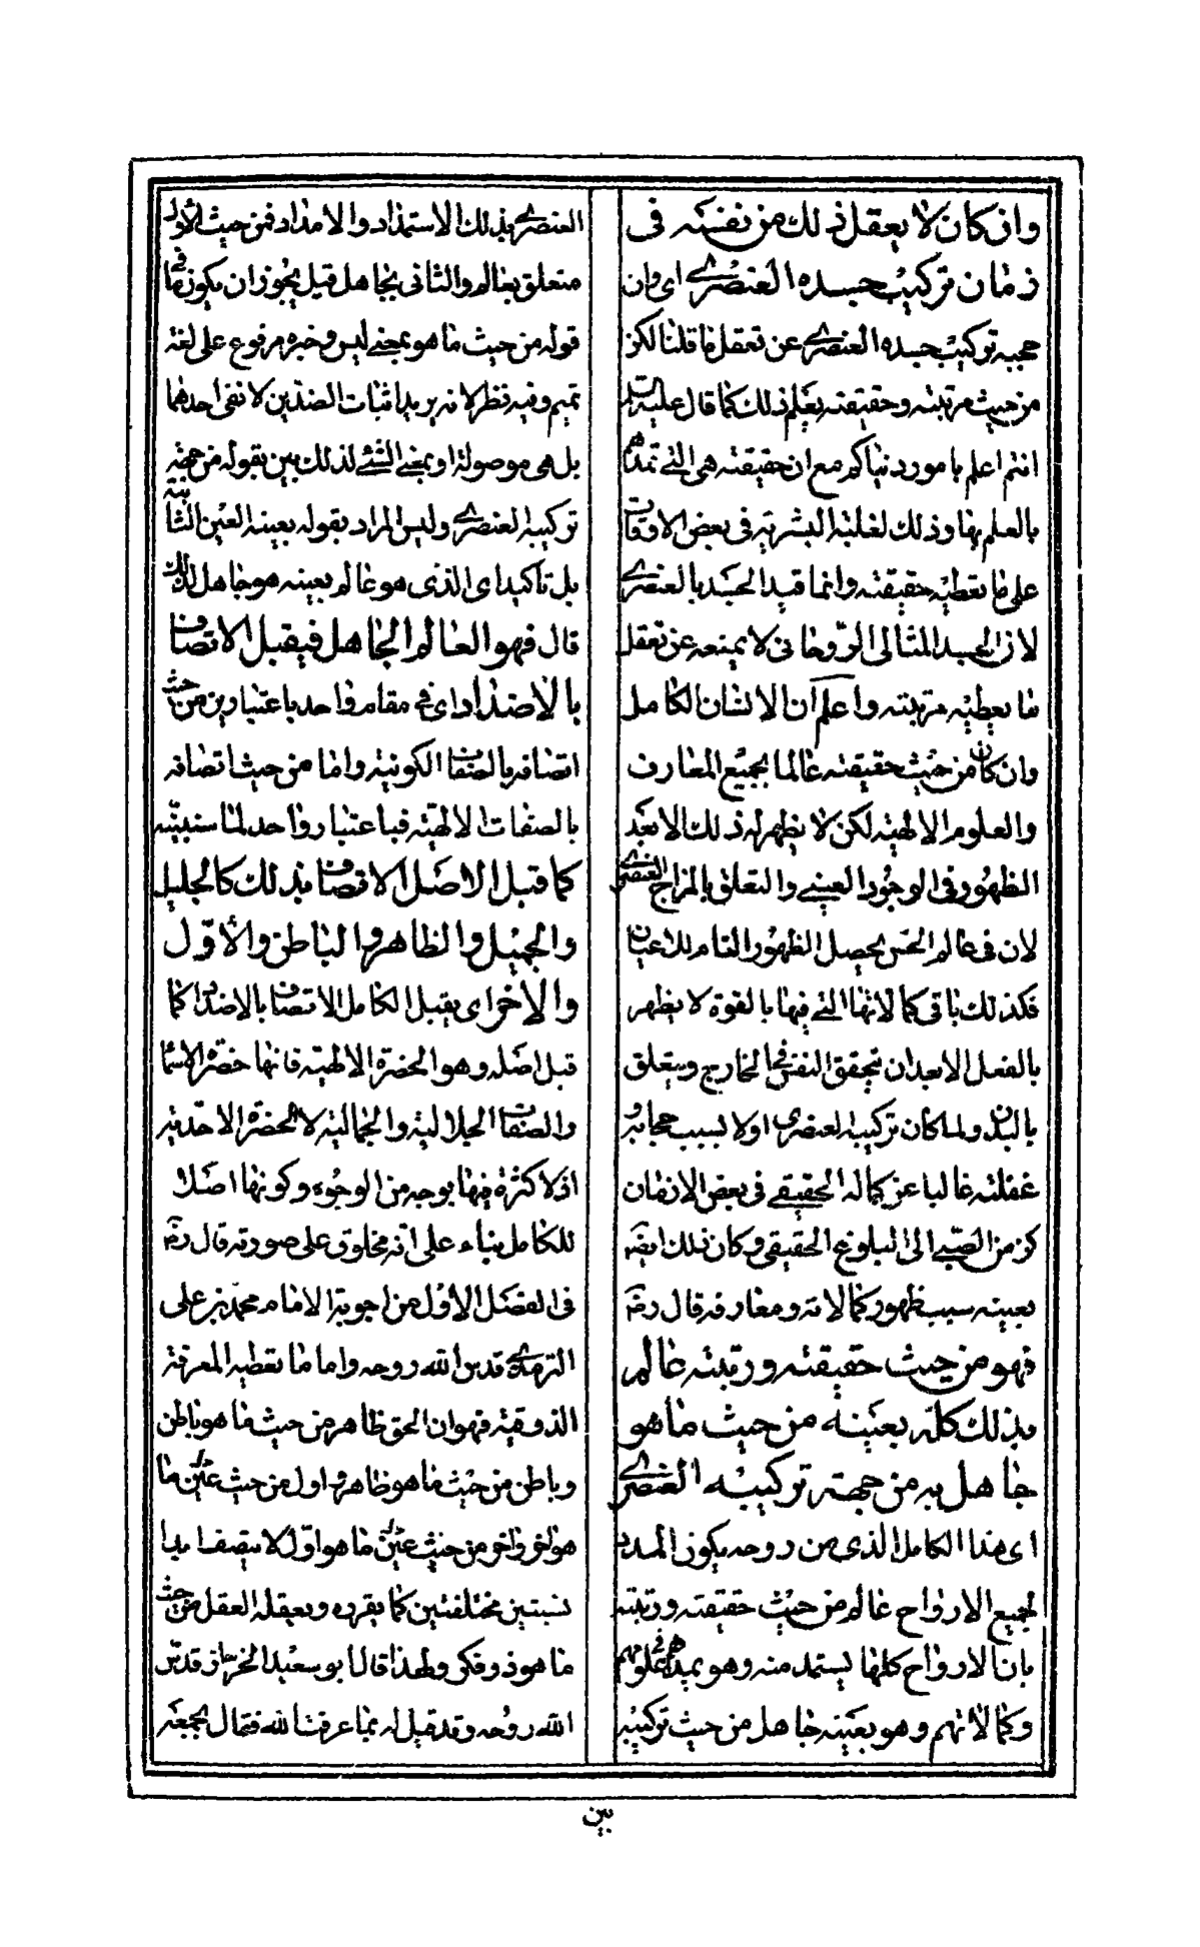 وان كان لا يعقل ذلك من نفسه فى
زمان تركيب جسده العنصرى اى وان
حجبه تركيب جسده العنصرى عن تعقل ما قلنا لكن
من حيث مرتبته وحقيقته يعلم ذلك كما قال عليه السلم
انتم اعلم بامور دنياكم مع ان حقيقته هى التى تمدهم
بالعلم بها وذلك لغلبة البشرية فى بعض الاوقات
على ما يعطيه حقيقته وانما قيد الجسد بالعنصرى
لان الجسد المثالى الروحانى لا يمنعه عن تعقل
ما يعطيه مرتبته واعلم ان الانسان الكامل
وان كان من حيث حقيقته عالما بجميع المعارف
والعلوم الالهية لكن لا يظهر له ذلك الا بعد
الظهور فى الوجود العينى والتعلق بالمزاج العنصرى
لان فى عالم الحس يحصل الظهور التام للاعيان
فكذلك باقى كمالاتها التى فيها بالقوة لا يظهر
بالفعل الا بعد ان تحقق النفس فى الخارج ويتعلق
بالبدن ولما كان تركيبه العنصرى اولا بسبب حجابه و
غفلته غالبا عن كماله الحقيقى فى بعض الازمان
كزمن الصبى الى البلوغ الحقيقى وكان ذلك ايضه
بعينه سبب ظهور كمالاته ومعارفه قال رضه
فهو من حيث حقيقته ورتبته عالم
بذلك كله بعينه من حيث ما هو
جاهل به من جهة تركيبه العنصرى
اى هذا الكامل الذى من روحه يكون المدد
لجميع الارواح عالم من حيث حقيقته ورتبته
بان الارواح كلها يستمد منه وهو يمدهم فى علومهم
وكمالاتهم وهو بعينه جاهل من حيث تركيبه
العنصرى بذلك الاستمداد والامداد فمن حيث الاول
متعلق بعالم والثانى بجاهل قيل يجوز ان يكون ما فى
قوله من حيث ما هو بمعنى ليس وخبره مرفوع على لغة
تميم وفيه نظر لانه يريد اثبات الضدين لا نفى احدهما
بل هى موصولة او بمعنى الشئ لذلك بين بقوله من جهة
تركيبه العنصرى وليس المراد بقوله بعينه العين الثابتة
بل تاكيد اى الذى هو عالم بعينه هو جاهل لذلك
قال فهو العالم الجاهل فيقبل الاتصاف
بالاضداد اى فى مقام واحد باعتبارين من حيث
اتصافه بالصفات الكونية واما من حيث اتصافه
بالصفات الالهية فباعتبار واحد لما سنبينه
كما قبل الاصل الاتصاف بذلك كالجليل
والجميل والظاهر والباطن والأول
والاخر اى يقبل الكامل الاتصاف بالاضداد كما
قبل اصله وهو الحضرة الالهية فانها حضرة الاسما
والصفات الجلالية والجمالية لا الحضرة الاحدية
اذ لا كثرة فيها بوجه من الوجوه وكونها اصلا
للكامل بناء على انه مخلوق على صورته قال رضه
فى الفصل الاول من اجوبة الامام محمد بن على
الترمذى قدس الله روحه واما ما تعطيه المعرفة
الذوقية فهو ان الحق ظاهر من حيث ما هو باطن
وباطن من حيث ما هو ظاهر واول من حيث عين ما
هو اخر واخر من حيث عين ما هو اول لا يتصف ابدا
بنسبتين مختلفتين كما يقرره ويعقله العقل من حيث
ما هو ذو فكر ولهذا قال ابو سعيد الخراز قدس
الله روحه وقد قيل له بما عرفت الله فقال بجمعه
بين